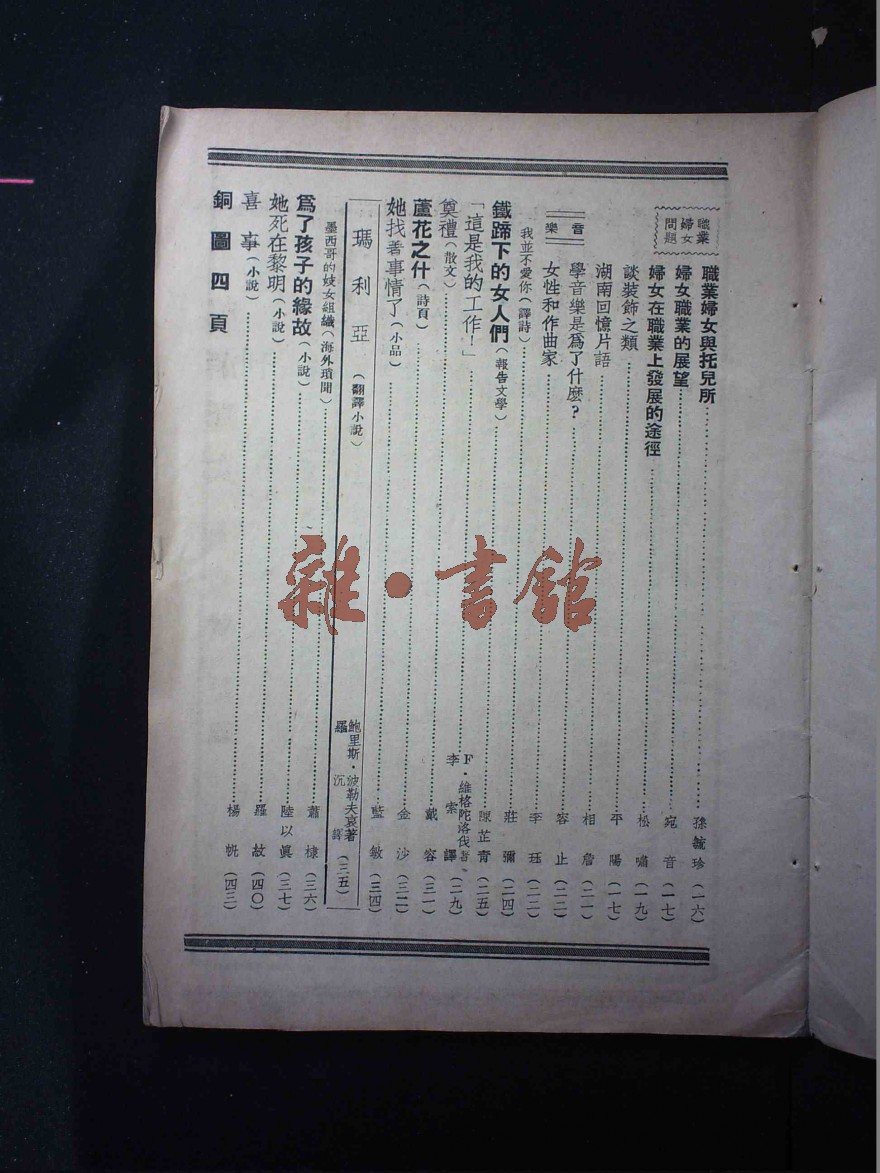 職業婦女問題
職業婦女與托兒所……孫毓珍(一六)
婦女職業的展望……宛音(一七)
婦女在職業上發展的途徑……松嘯(一九)
談裝飾之類……平陽(一七)
湖南回憶片語……相詹(二一)
音樂
學音樂是爲了什麽?……容止(二二)
女性和作曲家……李珏(二三)
我並不愛你(譯詩)……莊彌(二四)
鐵蹄下的女人們(報告文學)……陳芷青(二五)
「這是我的工作!」……F·維格陀洛伐著 李索譯(二九)
奠禮(散文)……戴容(三一)
蘆花之什(詩頁)……金沙(三二)
她找着事情了(小品)……藍敏(三四)
瑪利亞(翻譯小說) 鮑里斯·波勒夫哀著 羅沉譯(三五)
墨西哥的妓女組織(海外瑣聞)……蕭棣(三六)
爲了孩子的緣故(小說)……陸以眞(三七)
她死在黎明(小說)……羅故(四〇)
喜事(小說)……楊帆(四三)
銅圖四頁
雜·書館